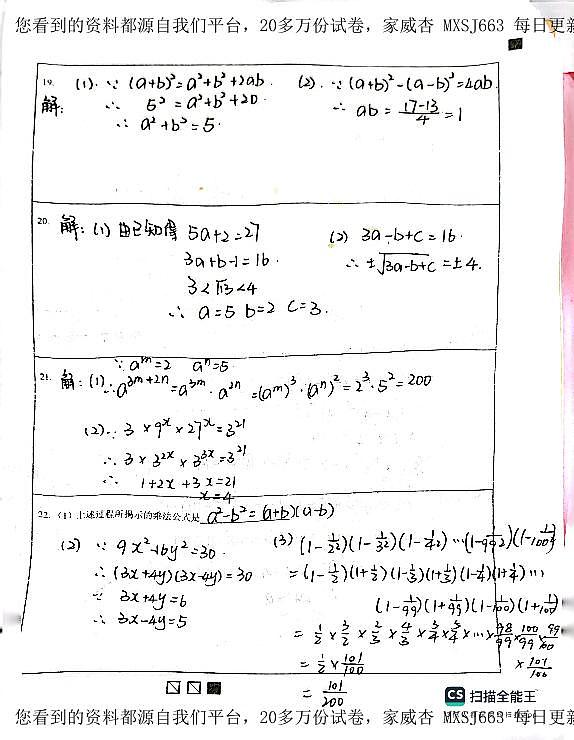 您看到的资料都源自我们平台，20多万份试卷，家威杏 MXSJ663 每日更新
19. (1). ∵ (a+b)²=a²+b²+2ab.
解: ∴ 5²=a²+b²+20
∴ a²+b²=5.
(2). ∵ (a+b)²-(a-b)²=4ab.
∴ ab = (17-13)/4 = 1
20. 解: (1) 由已知得 5a+2=27
3a+b-1=16.
3<√13<4
∴ a=5 b=2 c=3.
(2) 3a-b+c=16.
∴ ±√(3a-b+c) =±4.
∵ aᵐ=2 aⁿ=5
21. 解: (1) ∴ a³ᵐ⁺²ⁿ=a³ᵐ·a²ⁿ =(aᵐ)³·(aⁿ)²=2³·5²=200
(2) ∵ 3×9ˣ×27ˣ=3²¹
∴ 3×3²ˣ×3³ˣ=3²¹
∴ 1+2x+3x=21
x=4
22. (1) 上述过程所揭示的乘法公式是 a²-b²=(a+b)(a-b)
(2) ∵ 9x²-16y²=30.
∴ (3x+4y)(3x-4y)=30
∵ 3x+4y=6
∴ 3x-4y=5
(3) (1-1/2²)(1-1/3²)(1-1/4²)…(1-1/99²)(1-1/100²)
=(1-1/2)(1+1/2)(1-1/3)(1+1/3)(1-1/4)(1+1/4)…
(1-1/99)(1+1/99)(1-1/100)(1+1/100)
=1/2×3/2×2/3×4/3×3/4×5/4×…×98/99×100/99×99/100
×101/100
=1/2×101/100
=101/200
CS 扫描全能王
您看到的资料都源自我们平台，20多万份试卷，家威杏 MXSJ663 每日更新